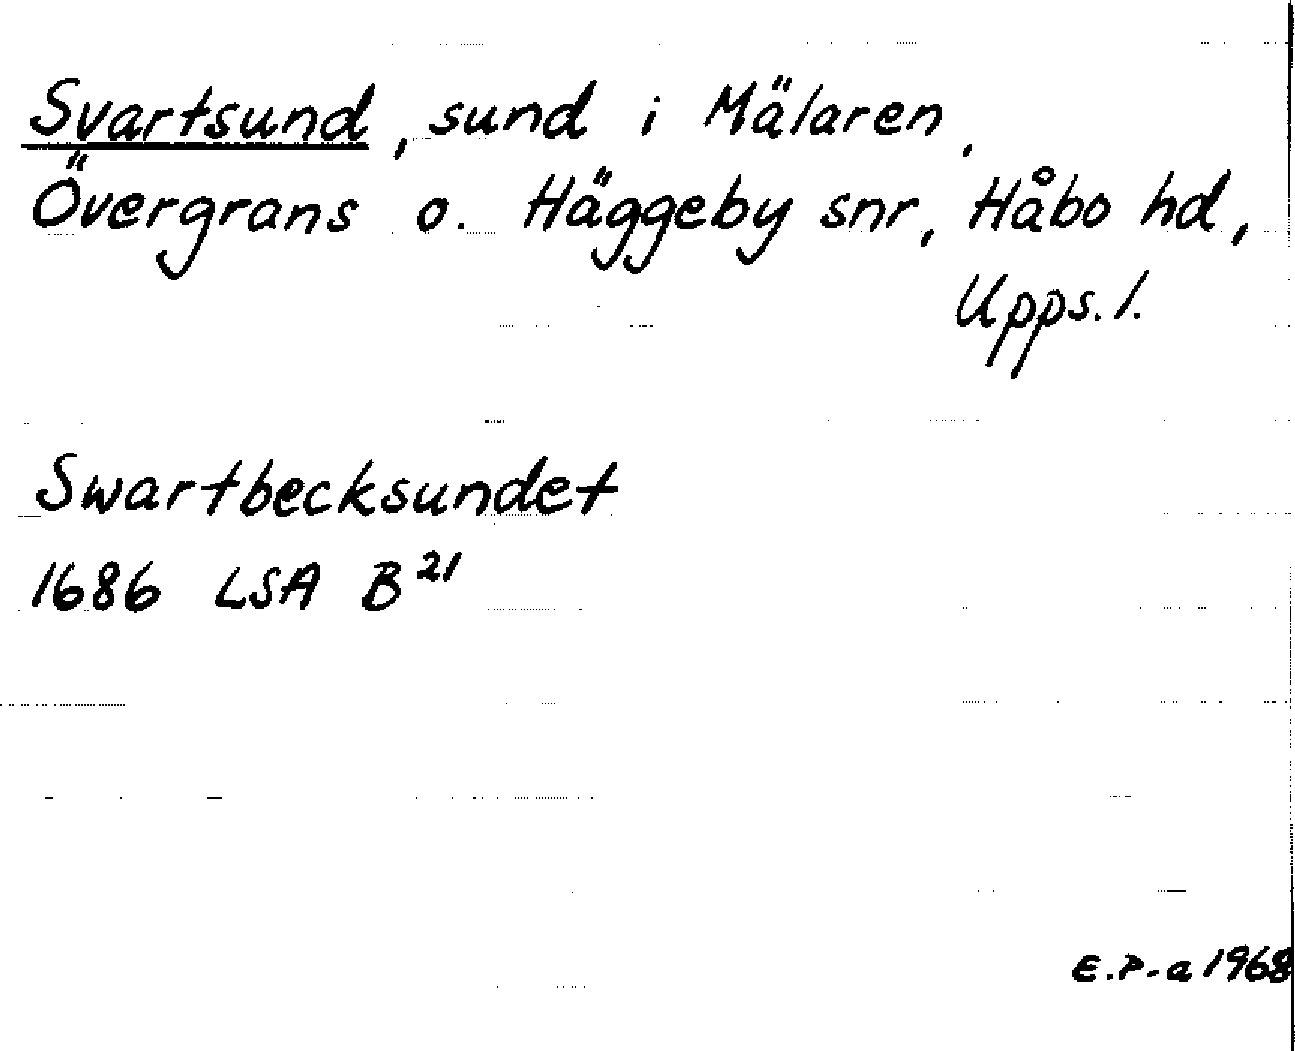 Svartsund, sund i Mälaren,
Övergrans o. Häggeby snr, Håbo hd,
Upps. l.
Swartbecksundet
1686 LSA B²¹
E.P-a 1968